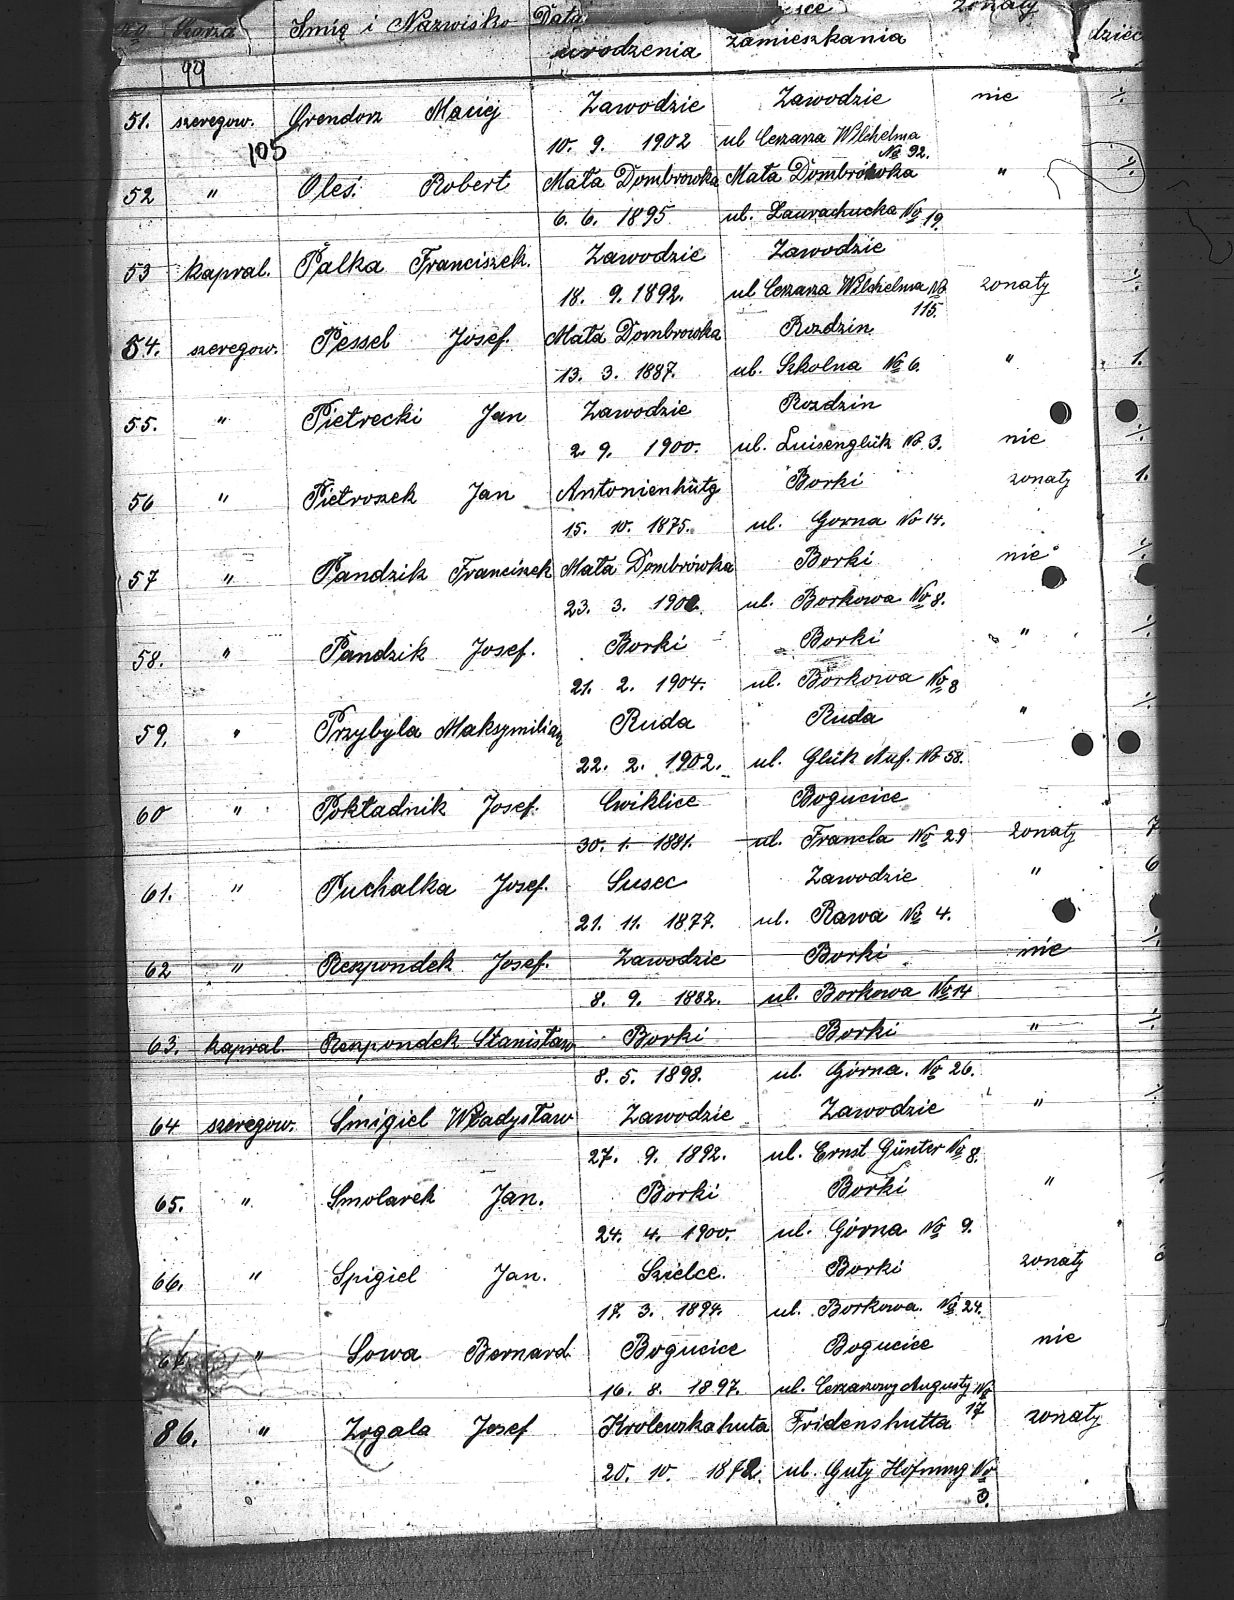 No Szarża Imię i Nazwisko Data urodzenia zamieszkania żonaty dzieci
99
51. szeregow. Orendorz Maciej Zawodzie Zawodzie nie ./.
105 10. 9. 1902 ul Cezarza Wilchelma № 92.
52 " Oleś. Robert Mała Dombrowka Mała Dombrówka " ./.
6. 6. 1895 ul. Laurachucka № 19.
53 kapral. Palka Franciszek. Zawodzie Zawodzie
18. 9. 1892. ul Cezarza Wilchelma № 115. zonaty ./.
54. szeregow. Pessel Josef. Mała Dombrowka Rozdzin.
13. 3. 1887. ul. Szkolna № 6. " 1.
55. " Pietrecki Jan Zawodzie Rozdzin
2. 9. 1900. ul. Luisenglük № 3. nie ./.
56 " Pietroszek Jan Antonienhütg Borki zonaty 1.
15. 10. 1875. ul. Gorna № 14.
57 " Pandzik Franciszek Mała Dombrówka Borki nie ./.
23. 3. 1902. ul. Borkowa № 8.
58. " Pandzik Josef. Borki Borki " ./.
21. 2. 1904. ul. Borkowa № 8
59. " Przybyla Maksymilian Ruda Ruda " ./.
22. 2. 1902. ul. Glük Auf. № 58.
60 " Pokładnik Josef. Cwiklice Bogucice
30. 1. 1881. ul. Francla № 29 zonaty 7
61. " Puchalka Josef. Susec Zawodzie " 6
21. 11. 1877. ul. Rawa № 4.
62 " Rezpondek Josef. Zawodzie Borki nie ./.
8. 9. 1882. ul. Borkowa № 14
63. kapral. Rezpondek Stanisław Borki Borki " ./.
8. 5. 1898. ul. Górna. № 26.
64 szeregow. Śmigiel Władysław Zawodzie Zawodzie " ./.
27. 9. 1892. ul. Ernst Günter № 8.
65. " Smolarek Jan. Borki Borki " ./.
24. 4. 1900. ul. Górna № 9.
66. " Spigiel Jan. Szielce. Borki zonaty 3
17. 3. 1894. ul. Borkowa. № 24.
67. " Sowa Bernard Bogucice Bogucice nie
16. 8. 1897. ul. Cezarzowy Augusty № 17
86. " Zogala Josef Krolewskahuta Fridenshutta zonaty
20. 10. 1872. ul. Guty Hofnung № 3.